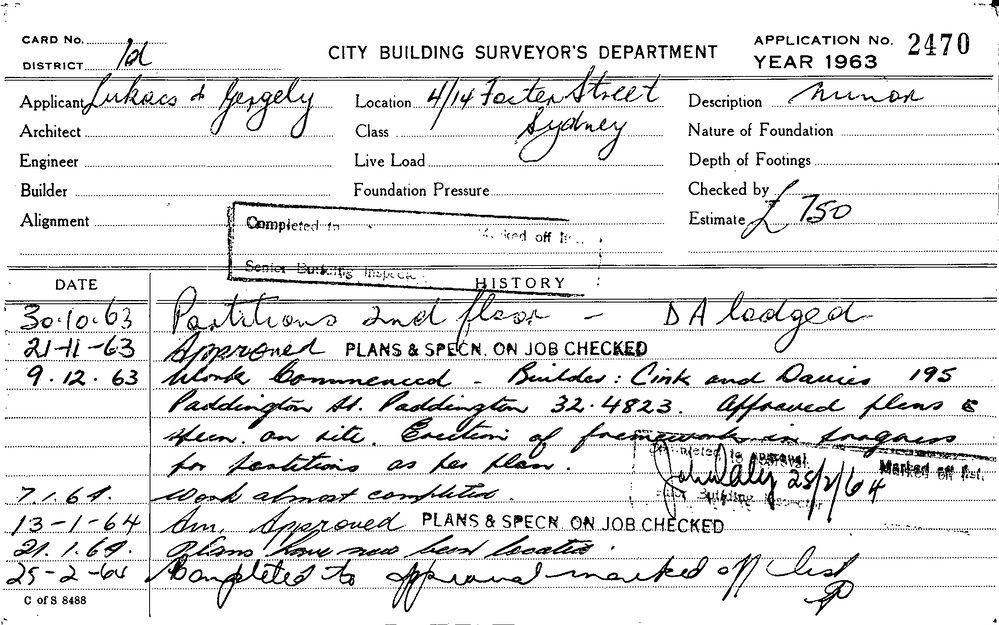 CARD No.
DISTRICT 1d
CITY BUILDING SURVEYOR'S DEPARTMENT
APPLICATION No. 2470
YEAR 1963
Applicant Lukacs & Gergely
Location 4/14 Foster Street
Sydney
Description Minor
Architect
Class
Nature of Foundation
Engineer
Live Load
Depth of Footings
Builder
Foundation Pressure
Checked by
Alignment
Estimate £ 750
Completed to
Marked off list
Senior Building Inspector
DATE
HISTORY
30.10.63 Partitions 2nd floor - DA lodged
21-11-63 Approved PLANS & SPECN. ON JOB CHECKED
9.12.63 Work Commenced - Builder: Cink and Davies 195
Paddington St. Paddington 32.4823. Approved plans &
specn. on site. Erection of framework in progress
for partitions as per plan.
Completed to approval
Marked off list.
John Daly 25/2/64
Senior Building Inspector
7.1.64. Work almost completed.
13-1-64 Am. Approved PLANS & SPECN. ON JOB CHECKED
21.1.64. Plans have now been located.
25-2-64 Completed to approval marked off list
C of S 8488